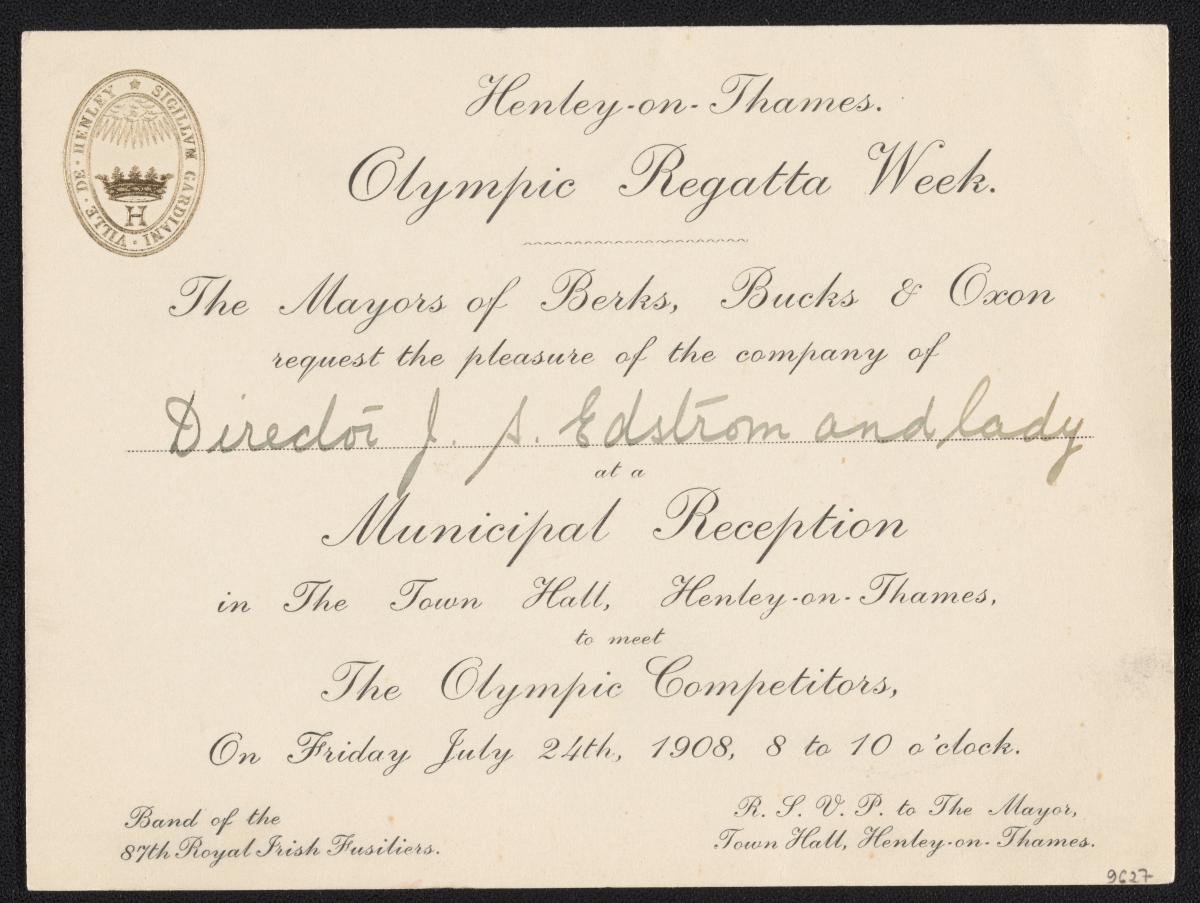 SIGILLVM GARDIANI · VILLE · DE · HENLEY
H
Henley-on-Thames.
Olympic Regatta Week.
The Mayors of Berks, Bucks & Oxon
request the pleasure of the company of
Director J. S. Edström and lady
at a
Municipal Reception
in The Town Hall, Henley-on-Thames,
to meet
The Olympic Competitors,
On Friday July 24th, 1908, 8 to 10 o'clock.
Band of the
87th Royal Irish Fusiliers.
R. S. V. P. to The Mayor,
Town Hall, Henley-on-Thames.
9627